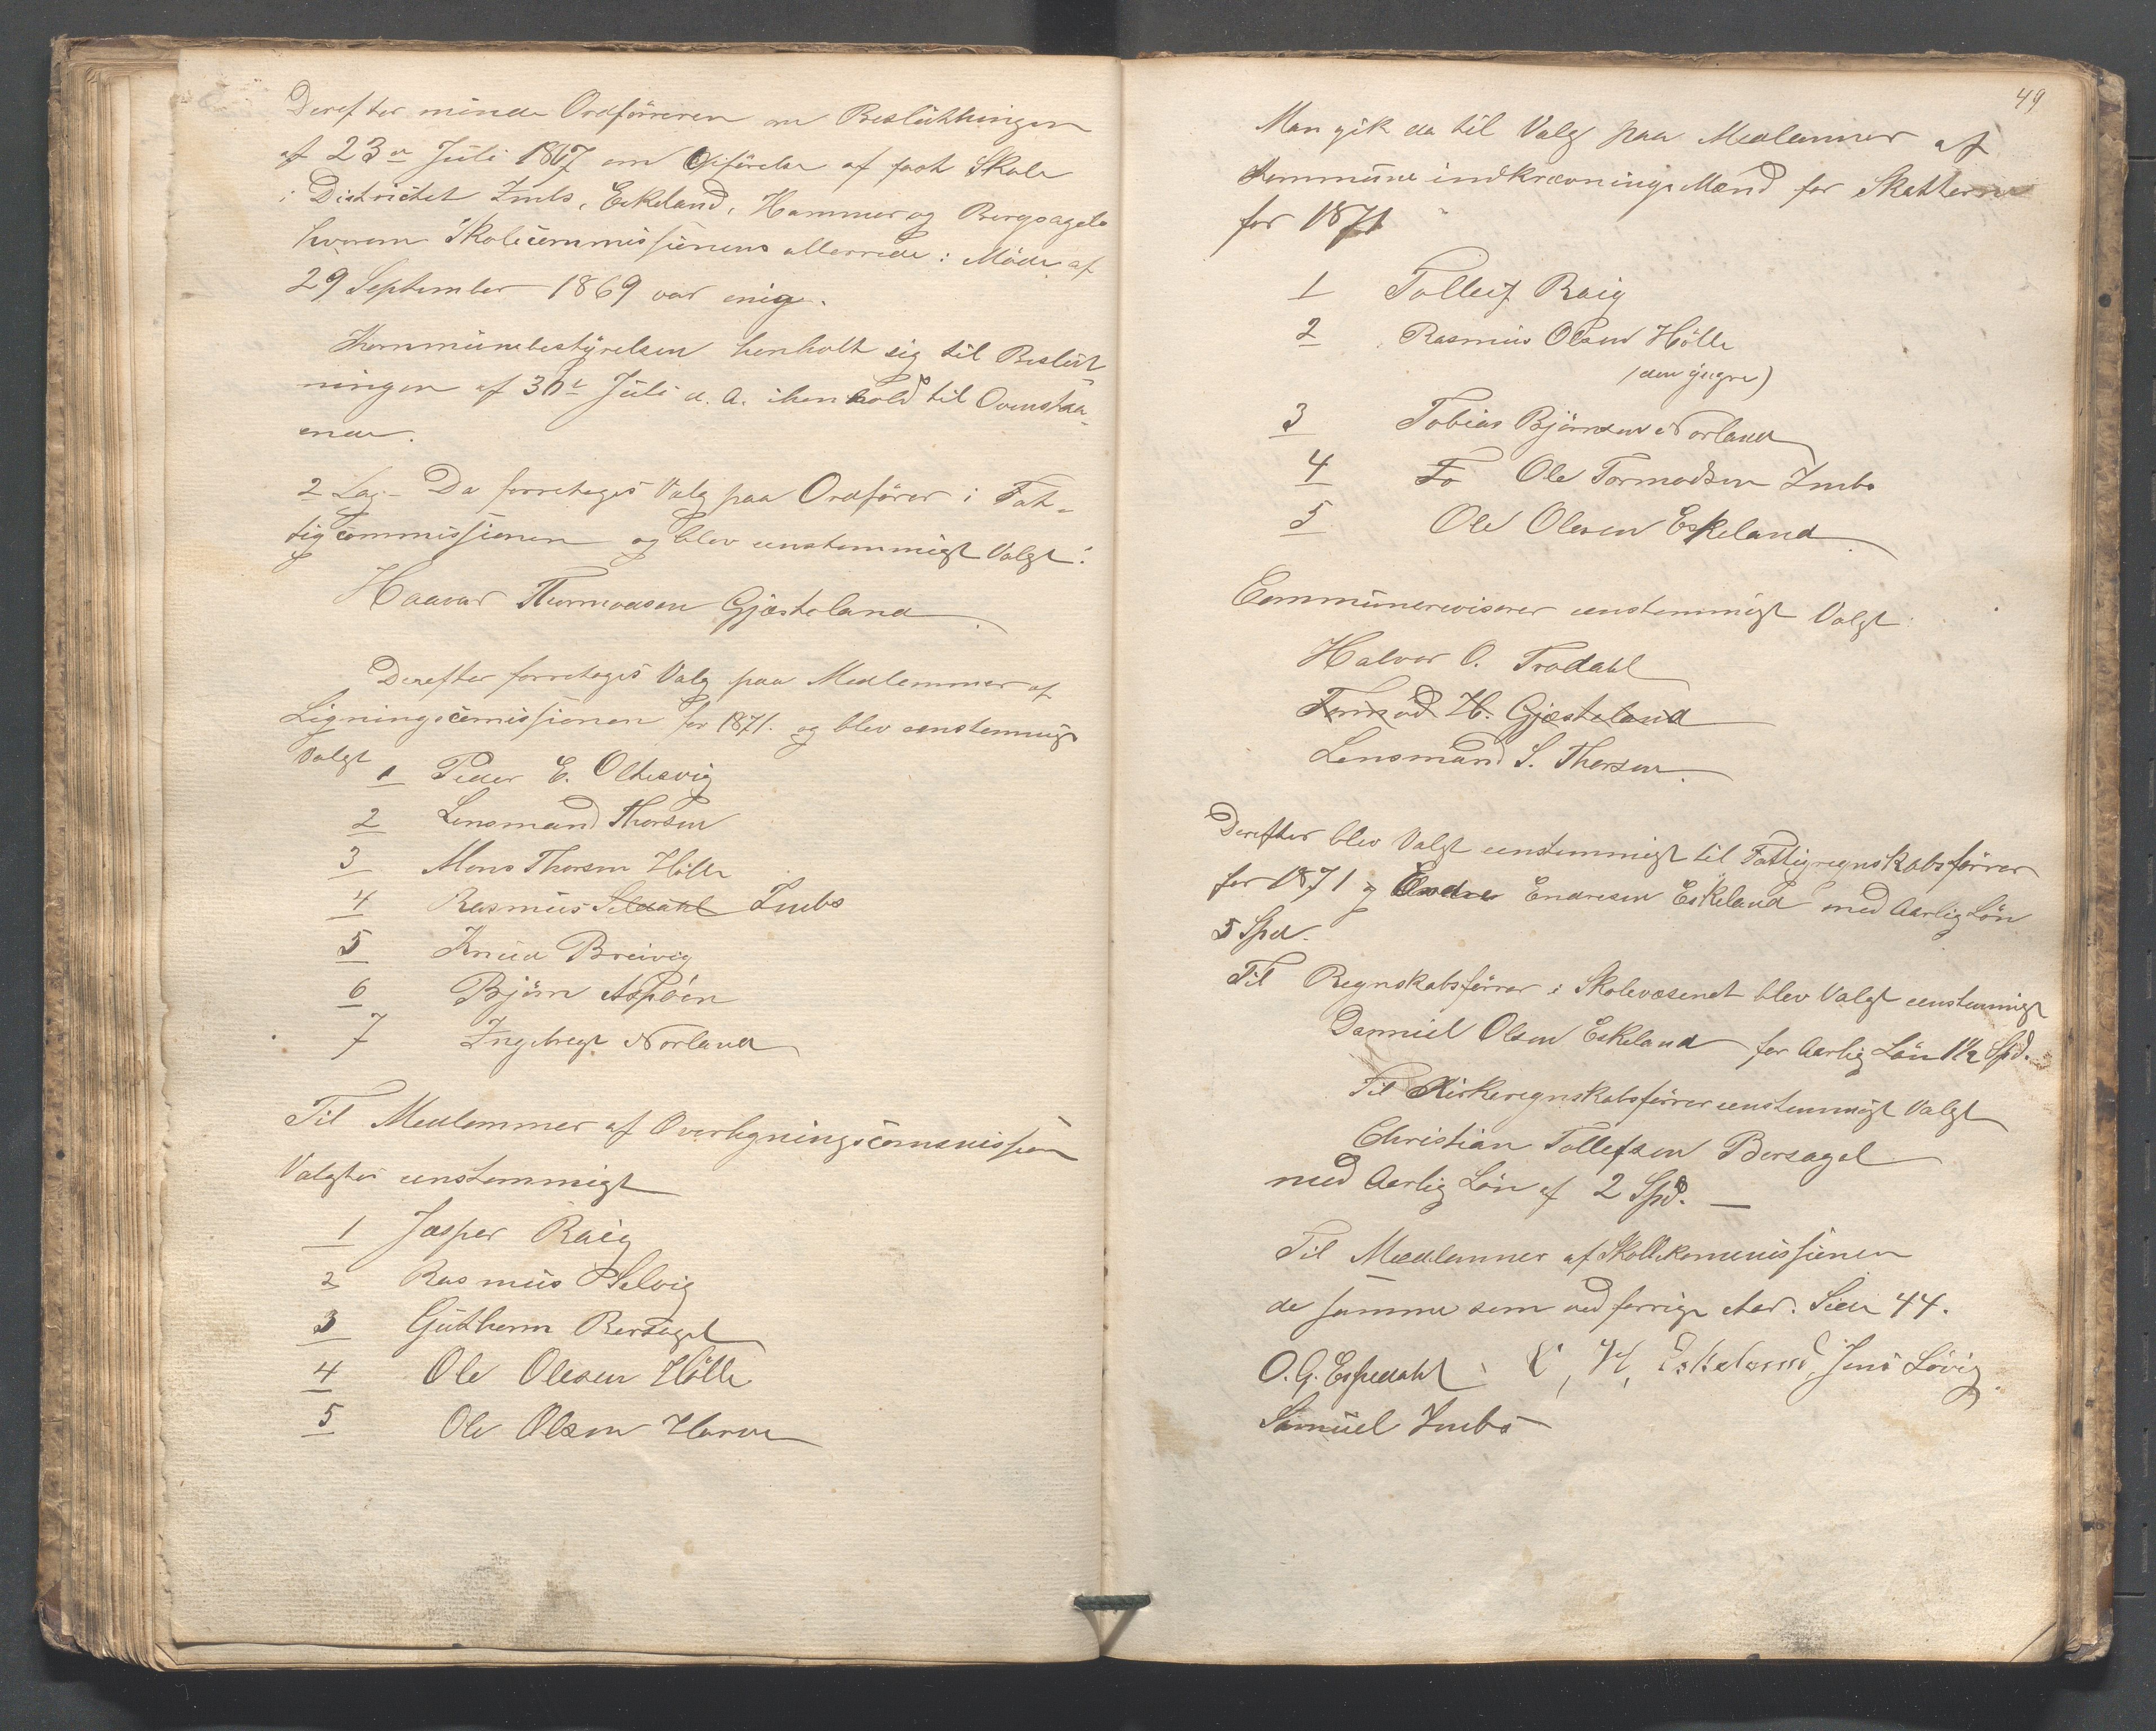 Derefter minde Ordförreren om Beslütthingen
af 23de Jüli 1867 om Opförelse af fast Skole
i Districhtet Imbs, Eskeland, Hammer og Bergsagels
hvorom Skolecommissionens allerrede i Möde af
29 September 1869 var enige.
Kommünebestÿrelsen henholt sig til Beslüt-
ningen af 30te Jüli d. A. ihenhold til Ovenstaa-
ende.
2 Sag - Da forretoges Valg paa Ordförer i Fat-
tigcommissionen og blev eenstemmigt Valgt:
Haavar Thormodsen Gjesteland.
Derefter forretoges Valg paa Medlemmer af
Ligningscomissionen for 1871. og blev eenstemmigt
Valgt
1 Peder E. Oltesvig
2 Lensmand Thorsen
3 Mons Thorsen Hölle
4 Rasmus Seldahl Imbs
5 Knüd Breivig
6 Björn Aspöen
7 Ingebregt Norland
Til Medlemmer af Overligningscommission
Valgtes eenstemmigt
1 Jasper Raeg
2 Rasmüs Selvig
3 Güthorm Bersagel
4 Ole Olesen Hölle
5 Ole Olsen
49
Man gik da til Valg paa Medlemmer af
Kommüne indkrævnings Mænd for Skatterne
for 1871
1 Tolleif Raeg
2 Rasmüs Olsen Hölle
(den ÿngre)
3 Tobias Björnsen Norland
4 To Ole Tormodsen Imbs
5 Ole Olesen Eskeland.
Commünerevisorer eenstemmigt Valgt
Halvor O. Trodahl
Tormod H. Gjesteland
Lensmand S. Thorsen.
Derefter blev Valgt eenstemmigt til Fattigregnskabsförrer
for 1871 Endre Endresen Eskeland med Aarlig Lön
5 Spd.
Til Regnskabsförrer i Skolevæsenet blev Valgt eenstemmigt
Danniel Olsen Eskeland for Aarlig Lön 1½ Spd.
Til Kirkeregnskabsförrer eenstemmigt Valgt
Christian Tollefsen Bersagel
med Aarlig Lön af 2 Spd. —
Til Medlemmer af Skollekommissionen
de samme som ved forrige Aar. Siden 44.
O. G. Espedahl E, H, Eskeland, Jens Lövig.
Samüel Imbs